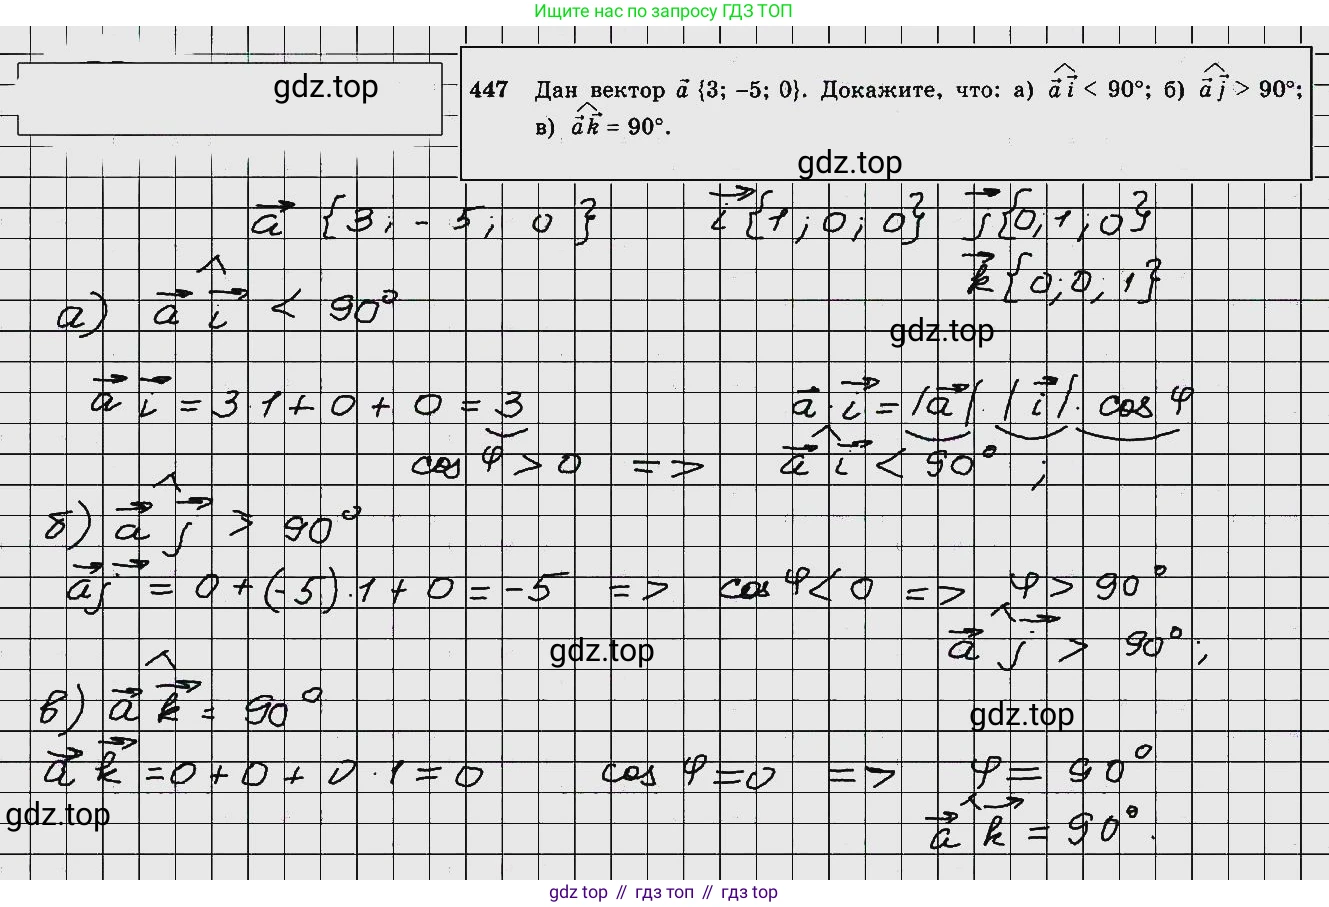 Ищите нас по запросу ГДЗ ТОП
gdz.top
447 Дан вектор a⃗ {3; −5; 0}. Докажите, что: а) a⃗ i⃗ < 90°; б) a⃗ j⃗ > 90°;
в) a⃗ k⃗ = 90°.
gdz.top
a⃗ {3; -5; 0} i⃗ {1; 0; 0} j⃗ {0; 1; 0}
k⃗ {0; 0; 1}
а) a⃗ i⃗ < 90°
gdz.top
a⃗ i⃗ = 3·1 + 0 + 0 = 3 a⃗ · i⃗ = |a⃗| · |i⃗| · cos φ
cos φ > 0 => a⃗ i⃗ < 90°;
б) a⃗ j⃗ > 90°
a⃗ j⃗ = 0 + (-5)·1 + 0 = -5 => cos φ < 0 => φ > 90°
gdz.top a⃗ j⃗ > 90°;
в) a⃗ k⃗ = 90°
gdz.top
a⃗ k⃗ = 0 + 0 + 0·1 = 0 cos φ = 0 => φ = 90°
gdz.top
a⃗ k⃗ = 90°.
gdz top // гдз топ // gdz top